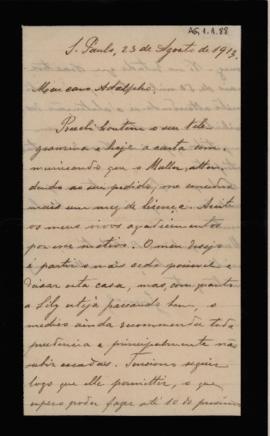 AG,1.1.88
S. Paulo, 23 de Agosto de 1913.
Meu caro Adolpho,
Recebi hontem o seu tele
gramma e hoje a carta com
municando que o Muller, atten
dendo ao seu pedido, me concedeu
mais um mez de licença. Aceite
os meus vivos agradecimentos
por esse motivo. O meu desejo
é partir o mais cedo possivel e
deixar esta casa, mas, com quanto
a Lily esteja passando bem, o
medico ainda recommenda toda
prudencia e principalmente não
subir escadas. Tenciono seguir
logo que elle permittir, o que
espero poder fazer até 10 do proximo